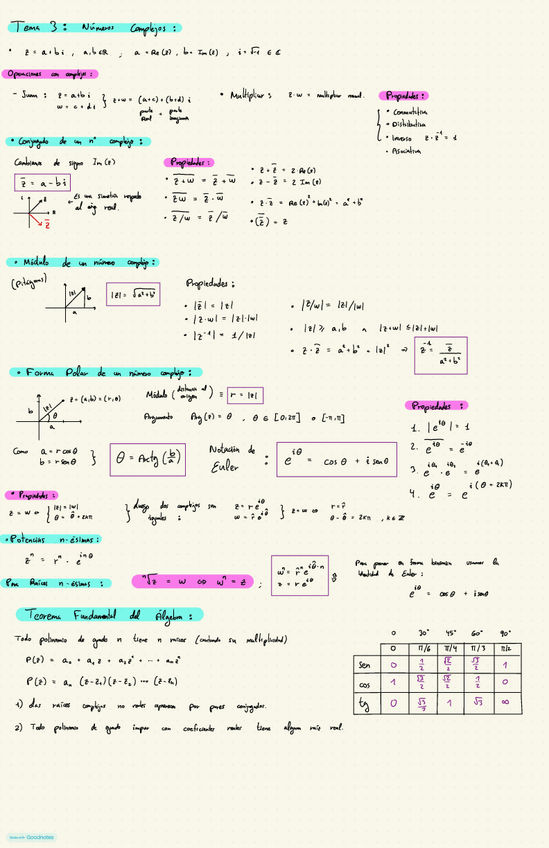 Tema 3: Números Complejos:
• z = a+bi , a,b ∈ ℝ , a = Re(z), b = Im(z) , i = √-1 ∈ ℂ
Operaciones con complejos:
- Suma: z = a+bi
w = c+di } z+w = (a+c) + (b+d) i
parte Real + parte imaginaria
• Multiplicar: z·w = multiplicar normal.
Propiedades:
• Conmutativa
• Distributiva
• Inverso z·z⁻¹ = 1
• Asociativa
• Conjugado de un nº complejo:
Cambiamos de signo Im(z)
z̅ = a - bi
Es una simetría respecto al eje real.
z̅
Propiedades:
• \overline{z+w} = z̅ + w̅
• \overline{zw} = z̅ · w̅
• \overline{z/w} = z̅ / w̅
• z + z̅ = 2·Re(z)
• z - z̅ = 2 Im(z)
• z·z̅ = Re(z)² + Im(z)² = a² + b²
• \overline{(z̅)} = z
• Módulo de un número complejo:
(Pitágoras)
|z| b
a
|z| = √a²+b²
Propiedades:
• |z̅| = |z|
• |z·w| = |z|·|w|
• |z⁻¹| = 1/|z|
• |z/w| = |z|/|w|
• |z| ≥ a,b ∧ |z+w| ≤ |z|+|w|
• z·z̅ = a²+b² = |z|² ⇒ z⁻¹ = z̅/(a²+b²)
• Forma Polar de un número complejo:
z = (a,b) = (r,θ)
b |z| θ
a
Módulo (distancia al origen) ≡ r = |z|
Argumento Arg(z) = θ , θ ∈ [0,2π] o [-π,π]
Como a = r cosθ
b = r senθ } θ = Arctg (b/a)
Notación de Euler: e^{iθ} = cosθ + i senθ
Propiedades:
1. |e^{iθ}| = 1
2. \overline{e^{iθ}} = e^{-iθ}
3. e^{iθ₁} · e^{iθ₂} = e^{i(θ₁+θ₂)}
4. e^{iθ} = e^{i(θ+2kπ)}
• Propiedades:
z = w ⇔ { |z| = |w|
θ = θ̂ + 2kπ } Luego dos complejos son iguales: z = r e^{iθ}
w = r̂ e^{iθ̂} } z = w ⇔ r = r̂
θ - θ̂ = 2kπ , k ∈ ℤ
• Potencias n-ésimas:
zⁿ = rⁿ · e^{inθ}
Para Raíces n-ésimas: ⁿ√z = w ⇔ wⁿ = z ; wⁿ = r̂ⁿ e^{iθ̂·n}
z = r e^{iθ}
Para pasar a forma binómica usamos la identidad de Euler:
e^{iθ} = cosθ + i senθ
Teorema Fundamental del Álgebra:
Todo polinomio de grado n tiene n raíces (contando su multiplicidad)
P(z) = a₀ + a₁z + a₂z² + ··· + aₙzⁿ
P(z) = aₙ (z-z₁)(z-z₂) ··· (z-zₙ)
1) Las raíces complejas no reales aparecen por pares conjugadas.
2) Todo polinomio de grado impar con coeficientes reales tiene alguna raíz real.
0 30° 45° 60° 90°
0 π/6 π/4 π/3 π/2
sen 0 1/2 √2/2 √3/2 1
cos 1 √3/2 √2/2 1/2 0
tg 0 √3/3 1 √3 ∞
Made with Goodnotes